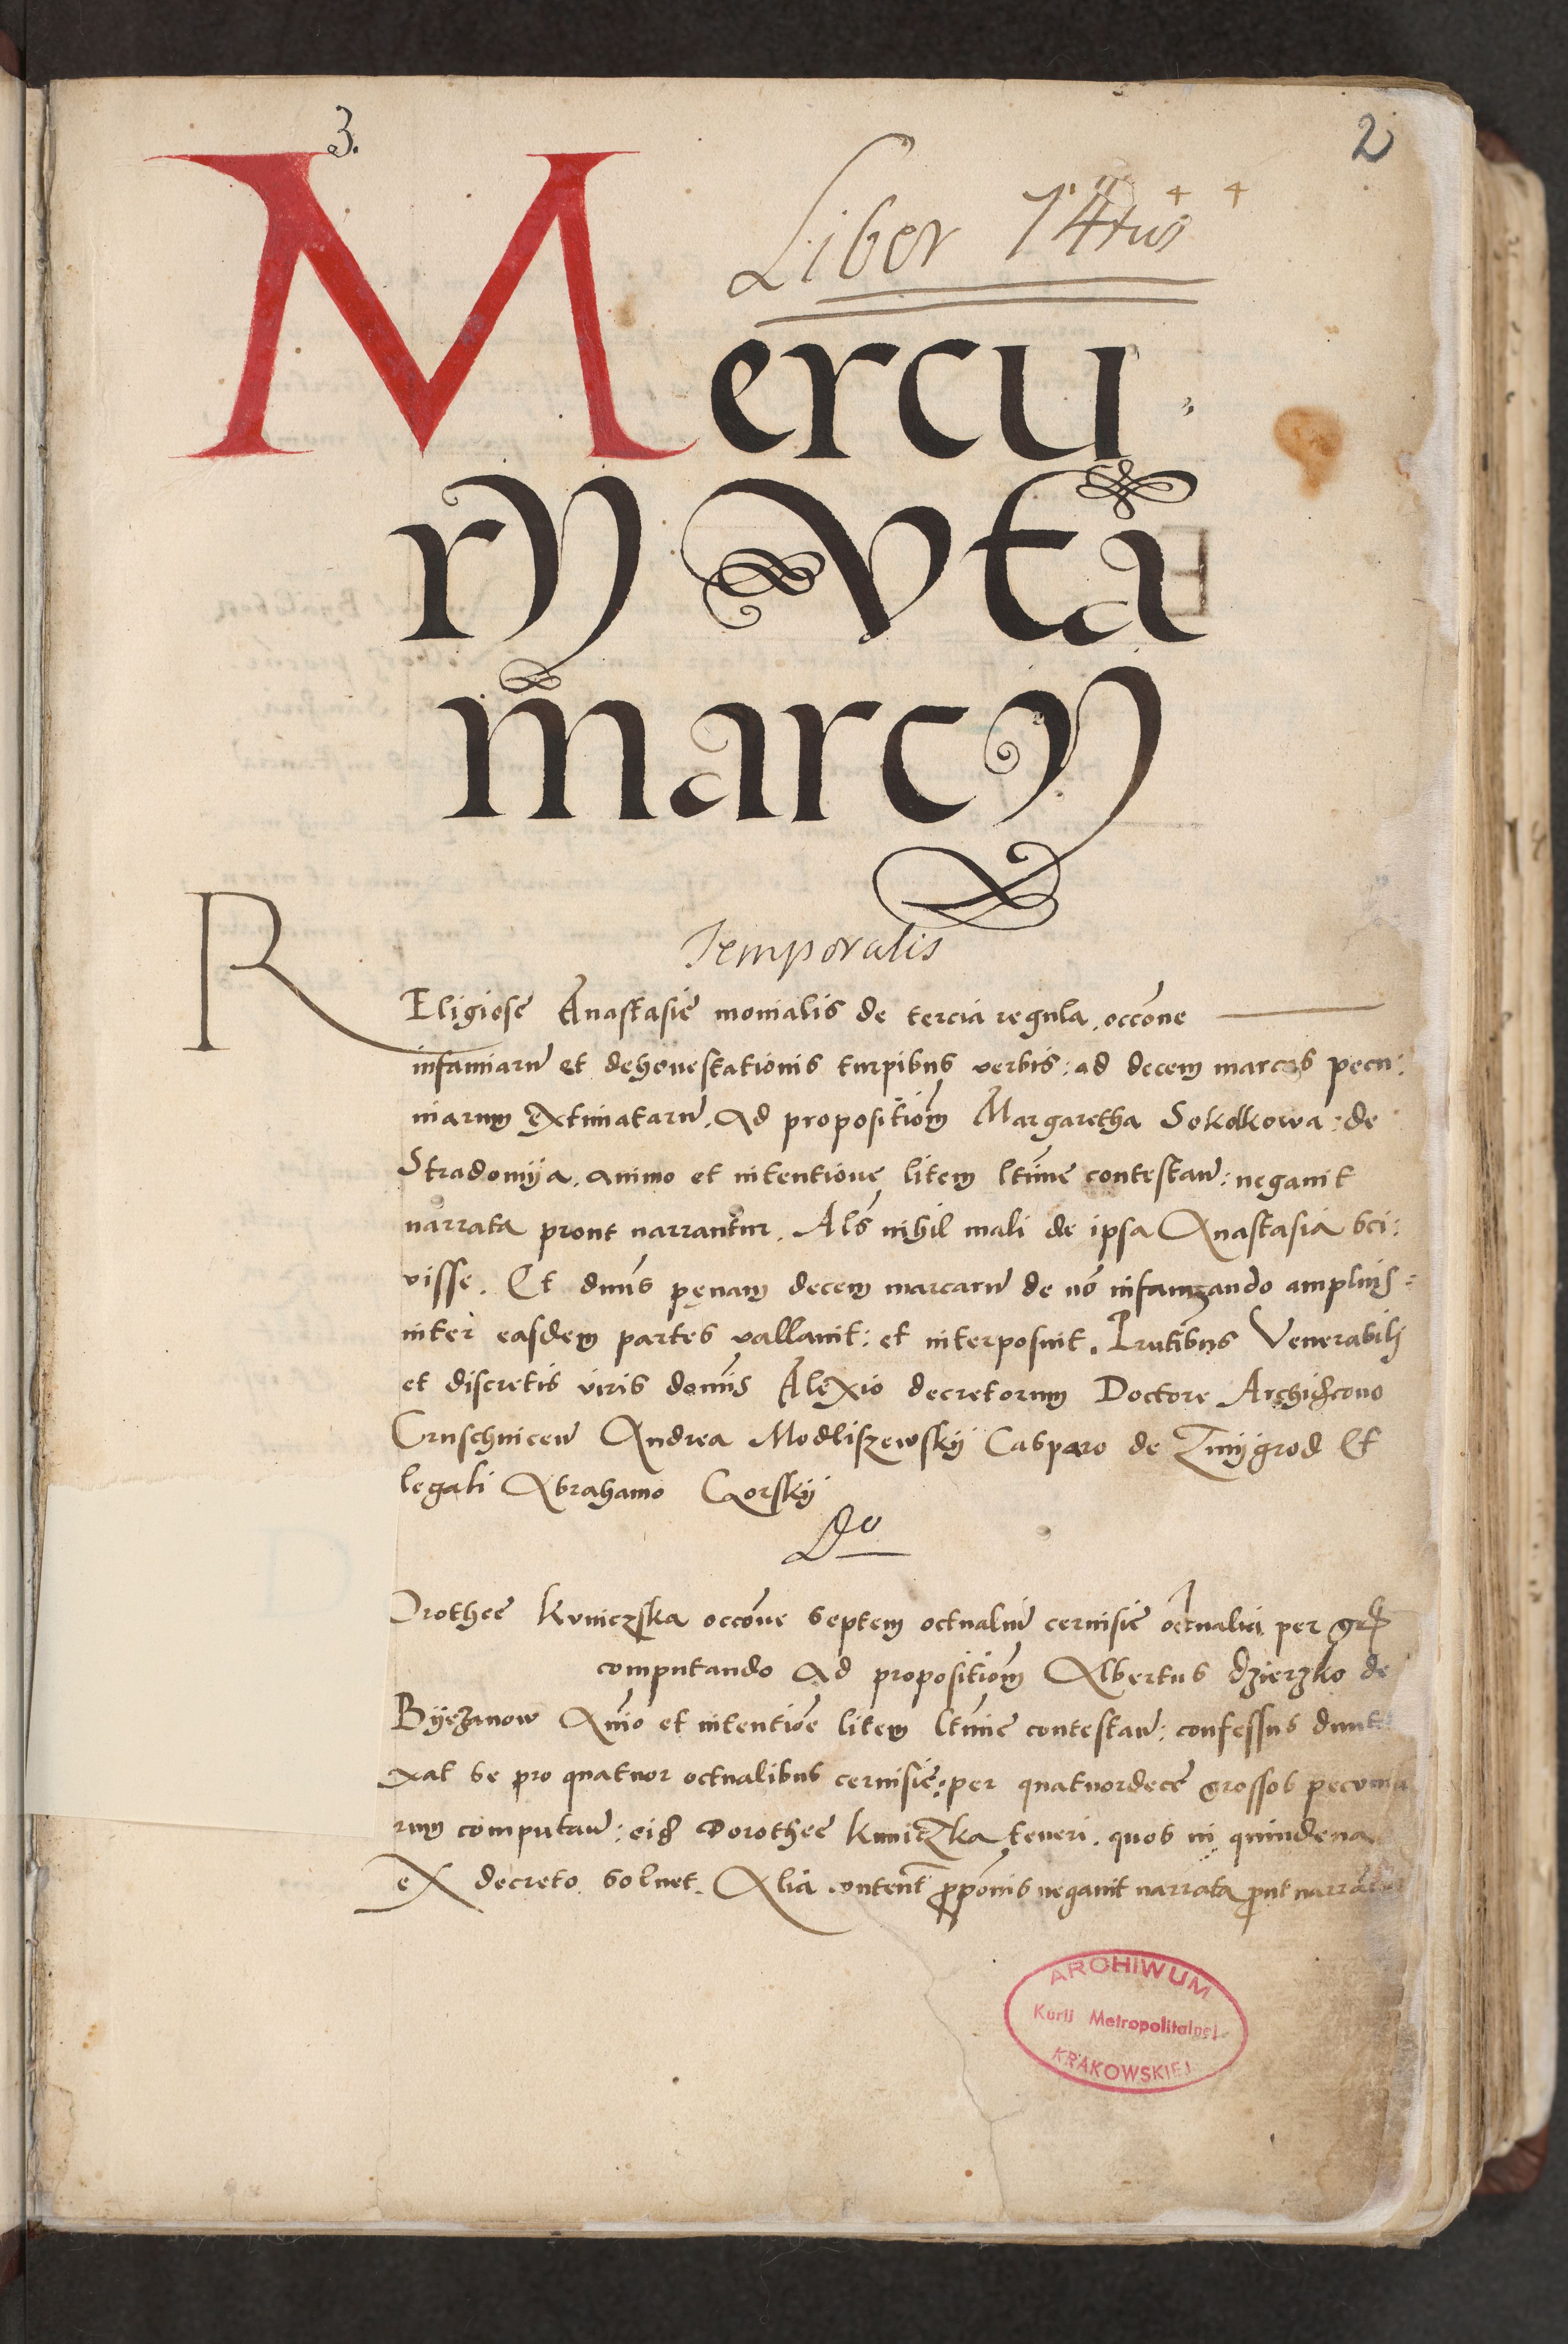 3.
2
Liber 14tus
Mercu
rij Vta
marcij
Temporalis
REligiose Anastasie monialis de tercia regula, occone
infamiarum et dehonestationis turpibus verbis: ad decem marcas pecu:
niarum extimatarum. Ad propositiom Margaretha Sokolkowa: de
Stradomija. animo et intentione litem ltime contestan: negavit
narrata prout narrantur. Als nihil mali de ipsa Anastasia sci:
visse. Et dnus penam decem marcarum de no infamzando amplius
inter easdem partes vallavit: et interposuit. Pntibus Venerabili
et discretis viris domis Alexio decretorum Doctore Archidcono
Cruschvicen Andrea Modliszewskij Casparo de Zmijgrod Et
legali Abrahamo Gorskij
Do
Orothee Kuniczska occone septem octualium cervisie octuali per gr
computando Ad propositiom Albertus Dzierzko de
Bijezanow Aimo et intentioe litem ltime contestan: confessus dunt
xat se pro quatuor octualibus cervisie: per quatuordece grossos pecunia
rum computan: eid Dorothee Kuniczka teneri. quos in quindena
ex decreto solvet. Alia content pponis negavit narrata put narrantur
ARCHIWUM
Kurii Metropolitalnej
KRAKOWSKIEJ